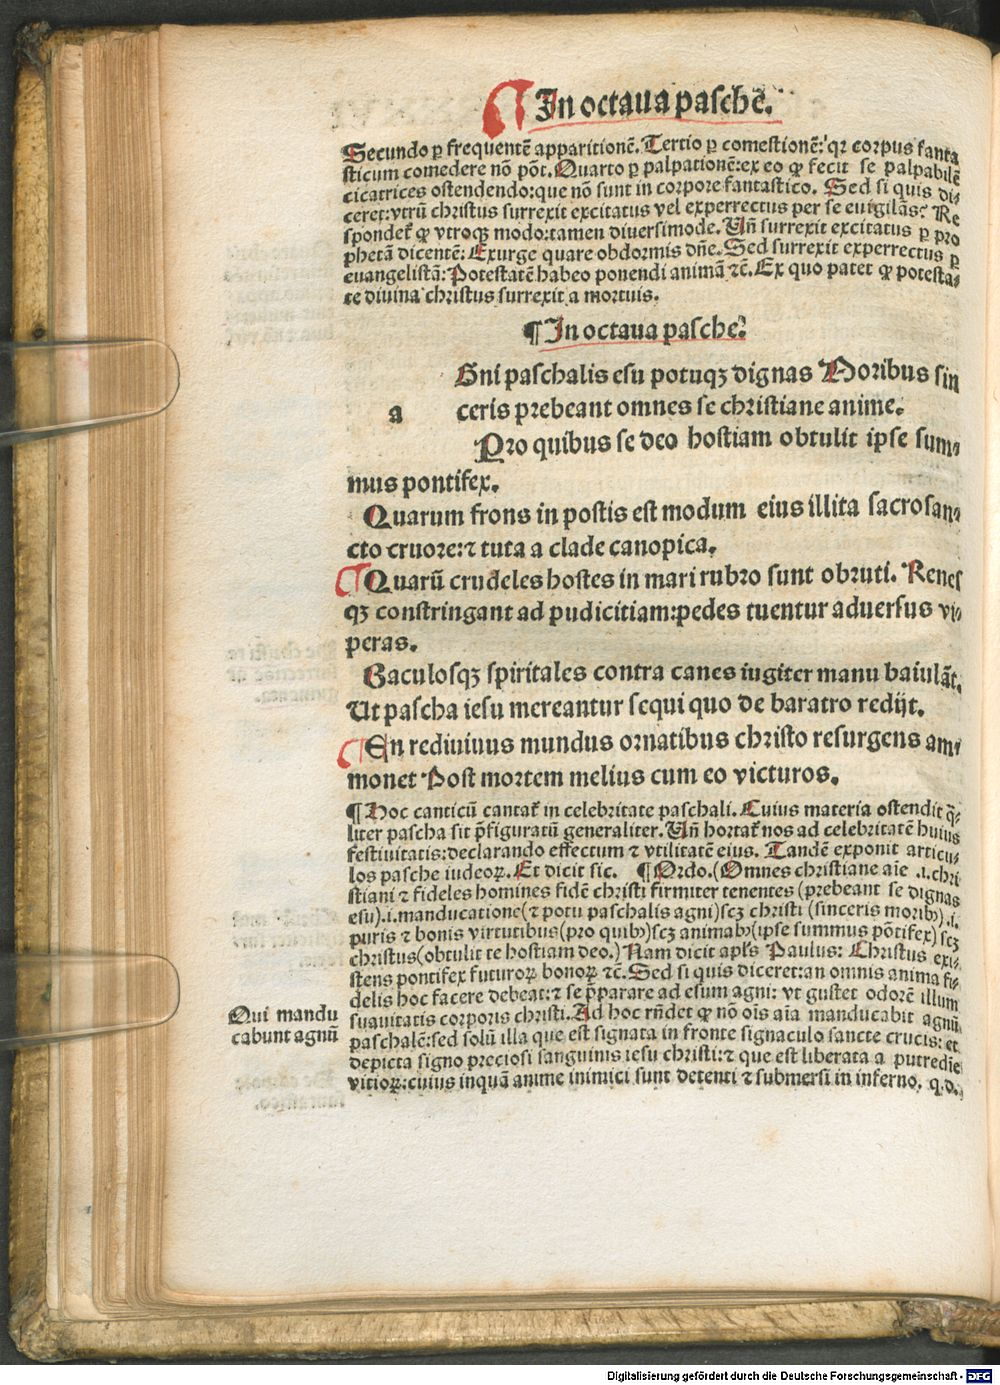 In octaua pasche.
Secundo ꝑ frequentē apparitionē. Tertio ꝑ comestionē: qꝛ corpus fanta
sticum comedere nō pōt. Quarto ꝑ palpationē: ex eo ꝙ fecit se palpabilē
cicatrices ostendendo: que nō sunt in corpore fantastico. Sed si quis di⸗
ceret: vtrū christus surrexit excitatus vel experrectus per se euigilās? Re
spondet᷑ ꝙ vtroqꝫ modo: tamen diuersimode. Vn̄ surrexit excitatus ꝑ pro
phetā dicentē: Exurge quare obdormis dn̄e. Sed surrexit experrectus ꝑ
euangelistā: Potestatē habeo ponendi animā ⁊c̄. Ex quo patet ꝙ potesta⸗
te diuina christus surrexit a mortuis.
¶ In octaua pasche.
Gni paschalis esu potuqꝫ dignas Moribus sin
a ceris prebeant omnes se christiane anime.
Pro quibus se deo hostiam obtulit ipse sum⸗
mus pontifex.
Quarum frons in postis est modum eius illita sacrosan⸗
cto cruore: ⁊ tuta a clade canopica.
Quarū crudeles hostes in mari rubro sunt obruti. Renes
qꝫ constringant ad pudicitiam: pedes tuentur aduersus vi⸗
peras.
Baculosqꝫ spiritales contra canes iugiter manu baiulāt.
Ut pascha iesu mereantur sequi quo de baratro redijt.
En rediuiuus mundus ornatibus christo resurgens am⸗
monet Post mortem melius cum eo victuros.
¶ Hoc canticū cantat᷑ in celebritate paschali. Cuius materia ostendit q̄⸗
liter pascha sit p̄figuratū generaliter. Vn̄ hortat᷑ nos ad celebritatē huius
festiuitatis: declarando effectum ⁊ vtilitatē eius. Tandē exponit articu⸗
los pasche iudeoꝝ. Et dicit sic. ¶ Ordo. (Omnes christiane aīe .i. chri
stiani ⁊ fideles homines fidē christi firmiter tenentes (prebeant se dignas
esu) .i. manducatione (⁊ potu paschalis agni) scꝫ christi (sinceris moribꝰ) .i.
puris ⁊ bonis virtutibus (pro quibꝰ) scꝫ animabꝰ (ipse summus pōtifex) scꝫ
christus (obtulit te hostiam deo.) Nam dicit apl's Paulus: Christus exi⸗
stens pontifex futuroꝝ bonoꝝ ⁊c̄. Sed si quis diceret: an omnis anima fi⸗
delis hoc facere debeat: ⁊ se p̄parare ad esum agni: vt gustet odorē illum
Qui mandu
cabunt agnū
suauitatis corporis christi. Ad hoc rn̄det ꝙ nō oīs aīa manducabit agnū
paschalē: sed solū illa que est signata in fronte signaculo sancte crucis: et
depicta signo preciosi sanguinis iesu christi: ⁊ que est liberata a putredīe
vitioꝝ: cuius inquā anime inimici sunt detenti ⁊ submersi in inferno. q.d.
Digitalisierung gefördert durch die Deutsche Forschungsgemeinschaft - DFG